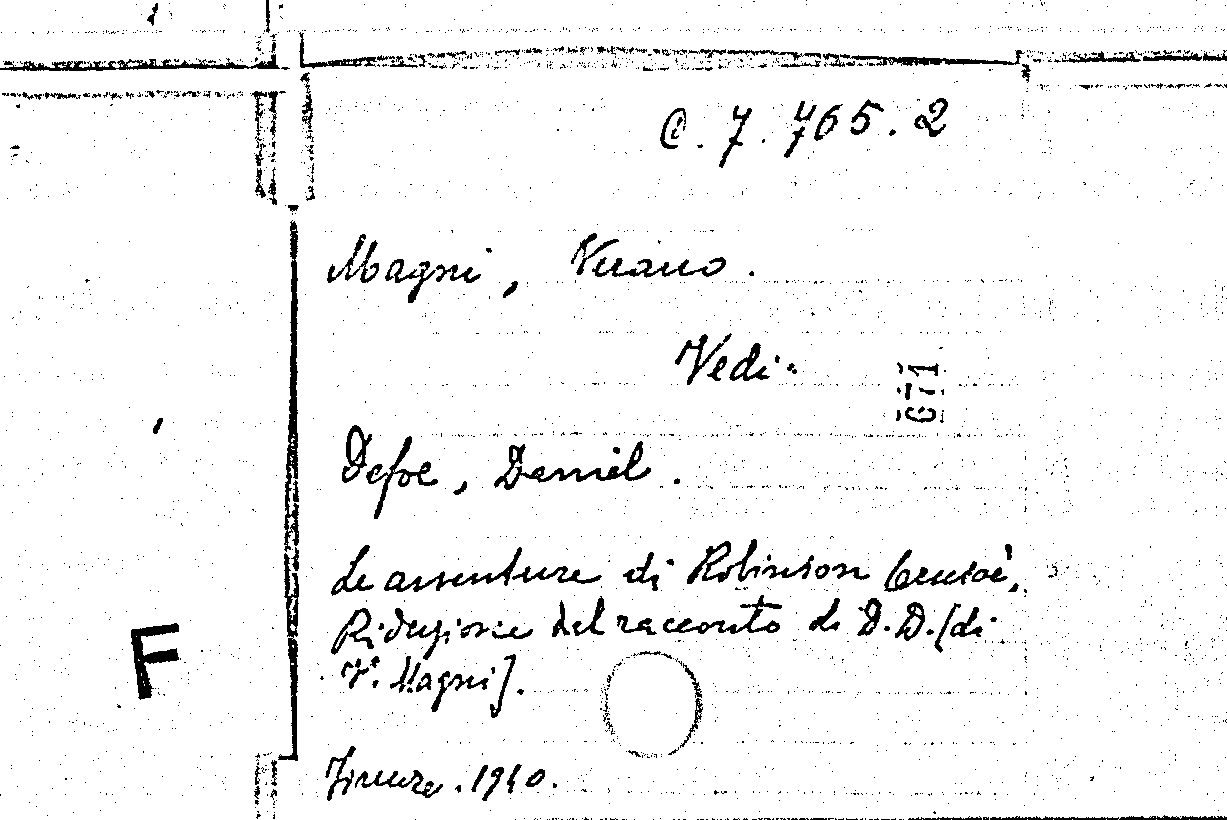 C. 7. 765. 2
Magni, Verano.
Vedi:
671
Defoe, Daniel.
Le avventure di Robinson Crusoè.
Riduzione del racconto di D. D. [di
V. Magni].
F
Firenze. 1940.